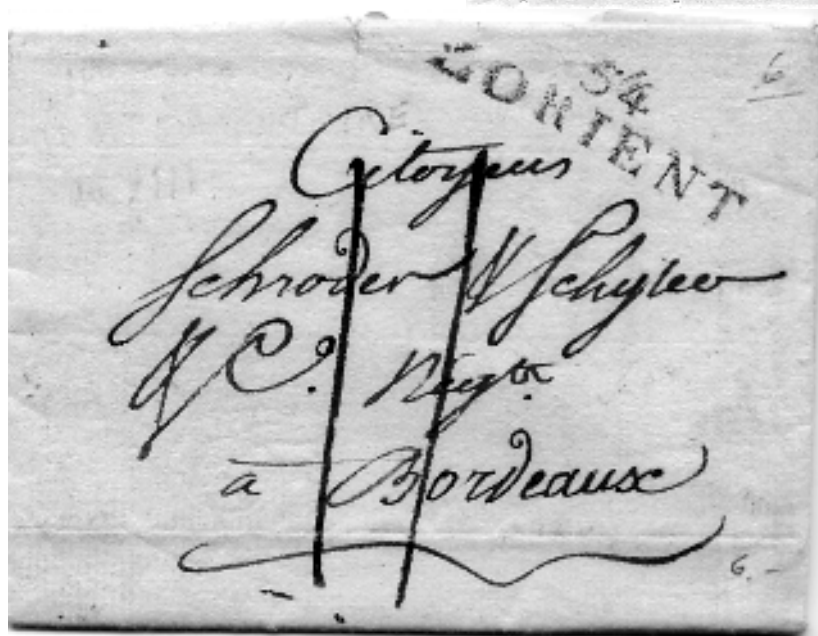 54
LORIENT
6
Citoyens
Schroder & Schyler
& C. Negts.
à Bordeaux
6.-